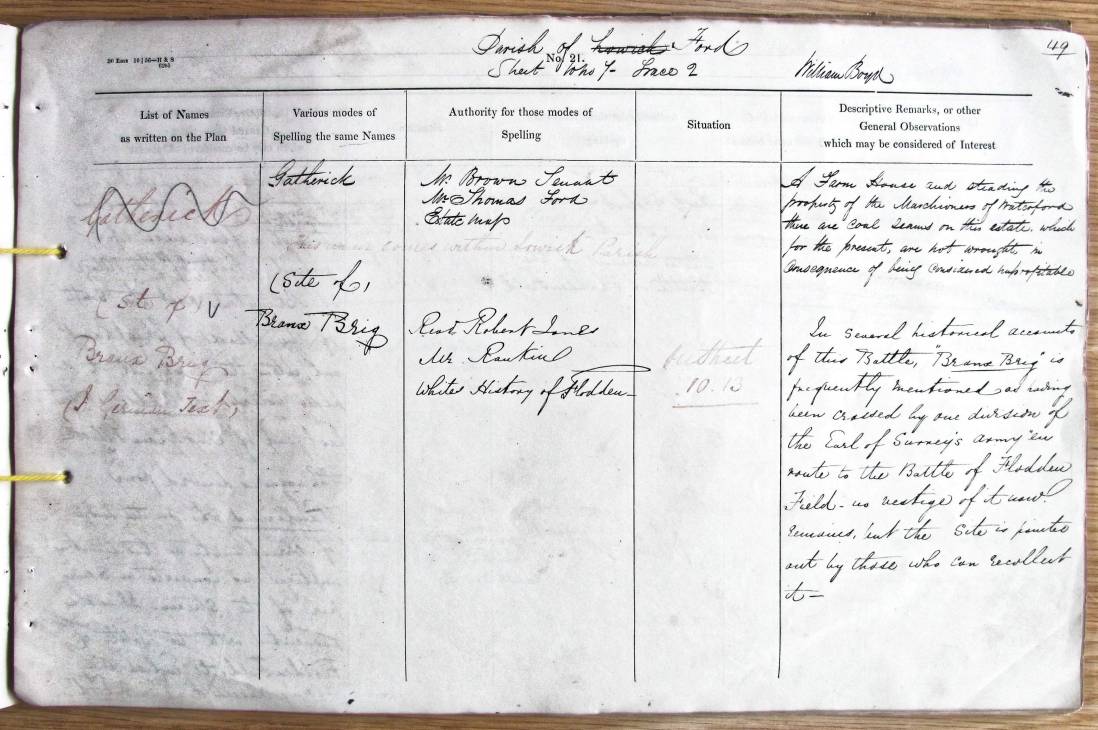 Parish of Lowick Ford
49
20 Ears 10 | 56—H & S
No. 21.
Sheet No 7 Trace 2
William Boyd
List of Names
as written on the Plan
Various modes of
Spelling the same Names
Authority for those modes of
Spelling
Situation
Descriptive Remarks, or other
General Observations
which may be considered of Interest
Gatherick
Gatherick
Mr. Brown Tenant
Mr Thomas Ford
Estate Map
A Farm House and steading the
property of the Marchioness of Waterford
there are Coal Seams on this estate which
for the present, are not wrought in
Consequence of being Considered unprofitable
This name comes within Lowick Parish
(Site of)
(Site of)
Branx Brig
Branx Brig
(In German Text)
Revd Robert Jones
Mr. Rankin
White's History of Flodden
10.13
In several historical accounts
of this Battle, "Branx Brig" is
frequently mentioned as having
been crossed by one division of
the Earl of Surrey's army "en
route to the Battle of Flodden
Field - no vestige of it now
remains, but the Site is pointed
out by those who can recollect
it—